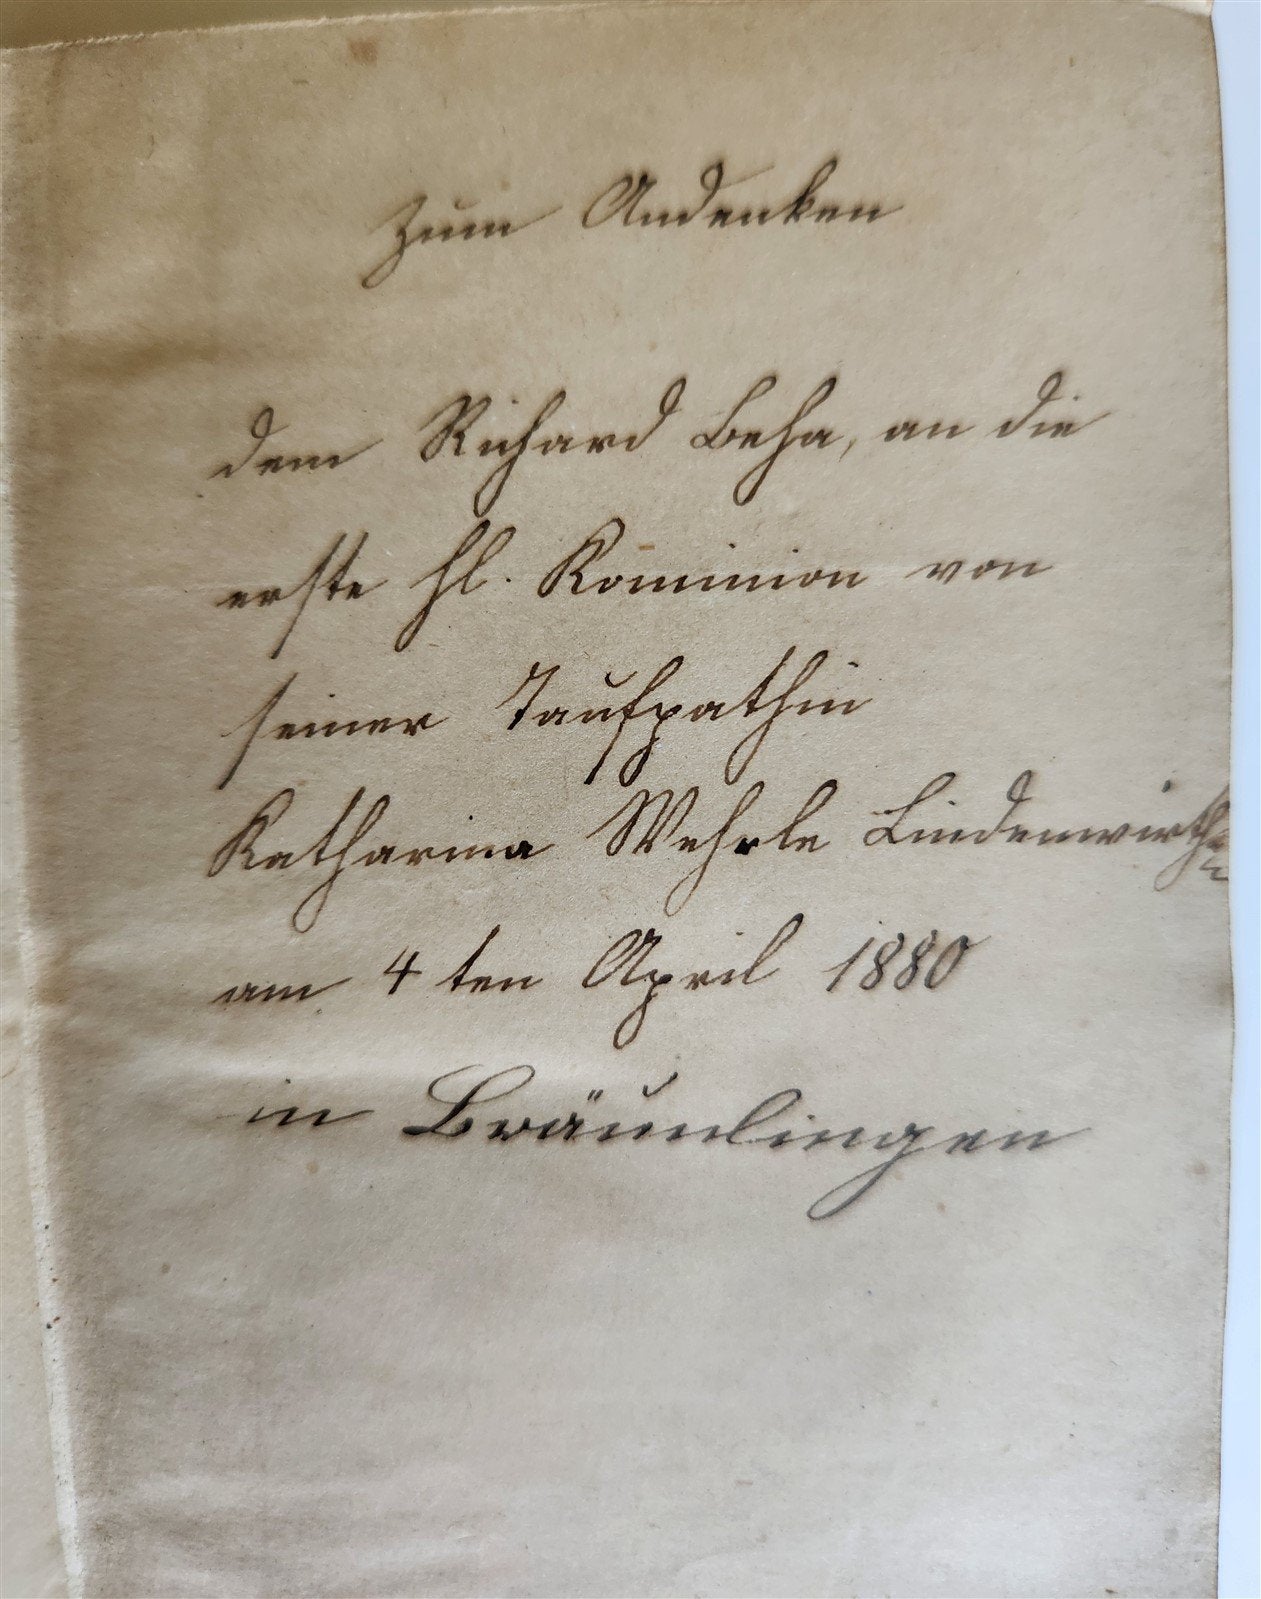 Zum Andenken
dem Richard Beha, an die
erste hl. Kominion von
seiner Taufpathin
Katharina Wehrle Lindenwirthin
am 4ten April 1880
in Bräunlingen